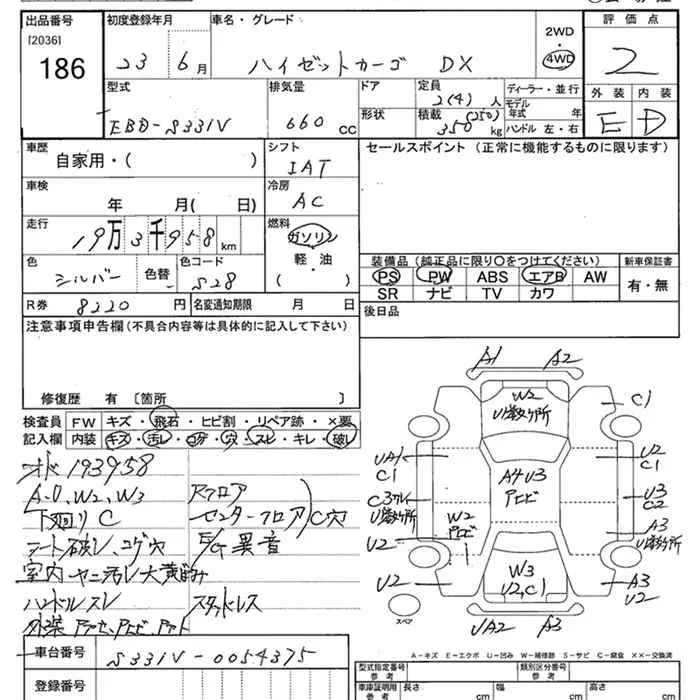 出品番号 初度登録年月 車名・グレード 評価点
[2036] 2WD
186 23 6月 ハイゼットカーゴ DX 4WD 2
型式 排気量 ドア 定員 2(4)人 ディーラー・並行 外装 内装
EBD-S331V 660cc 形状 積載 (250) 350kg モデル年式 年 ハンドル 左・右 E D
車歴 シフト セールスポイント (正常に機能するものに限ります)
自家用・( ) IAT
車検 冷房
年 月( 日) AC
走行 燃料
19万3千958km ガソリン
軽油
( )
色 色替 色コード 装備品 (純正品に限り○をつけてください) 新車保証書
シルバー S28 PS PW ABS エアB AW 有・無
SR ナビ TV カワ
R券 8220円 名変通知期限 月 日 後日品
注意事項申告欄(不具合内容等は具体的に記入して下さい)
修復歴 有 [箇所
検査員 FW キズ・飛石・ヒビ割・リペア跡・×要
記入欄 内装 キズ・汚レ・コゲ・穴・スレ・キレ・破レ
オド193958
A-U、W2、W3 Rフロア
下廻リC センターフロア C穴
シート破レ、コゲ穴 E/G異音
室内ヤニ汚レ大
ハンドルスレ スタッドレス
外装
車台番号 S331V-0054375
登録番号
A1 A2
W2
U複数ヶ所
C1
UA1
C1
U2
C1
A4U3
アヒビ
C3ワレ
U複数ヶ所
U3
C2
W2
アヒビ
A3
U複数ヶ所
U2
U2
W3
U2,C1
A3
U2
スペア
UA2 A3
A-キズ E-エクボ U-凹み W-補修跡 S-サビ C-腐食 XX-交換済
型式指定番号 参考 類別区分番号 参考
車庫証明用 参考 長さ cm 幅 cm 高さ cm